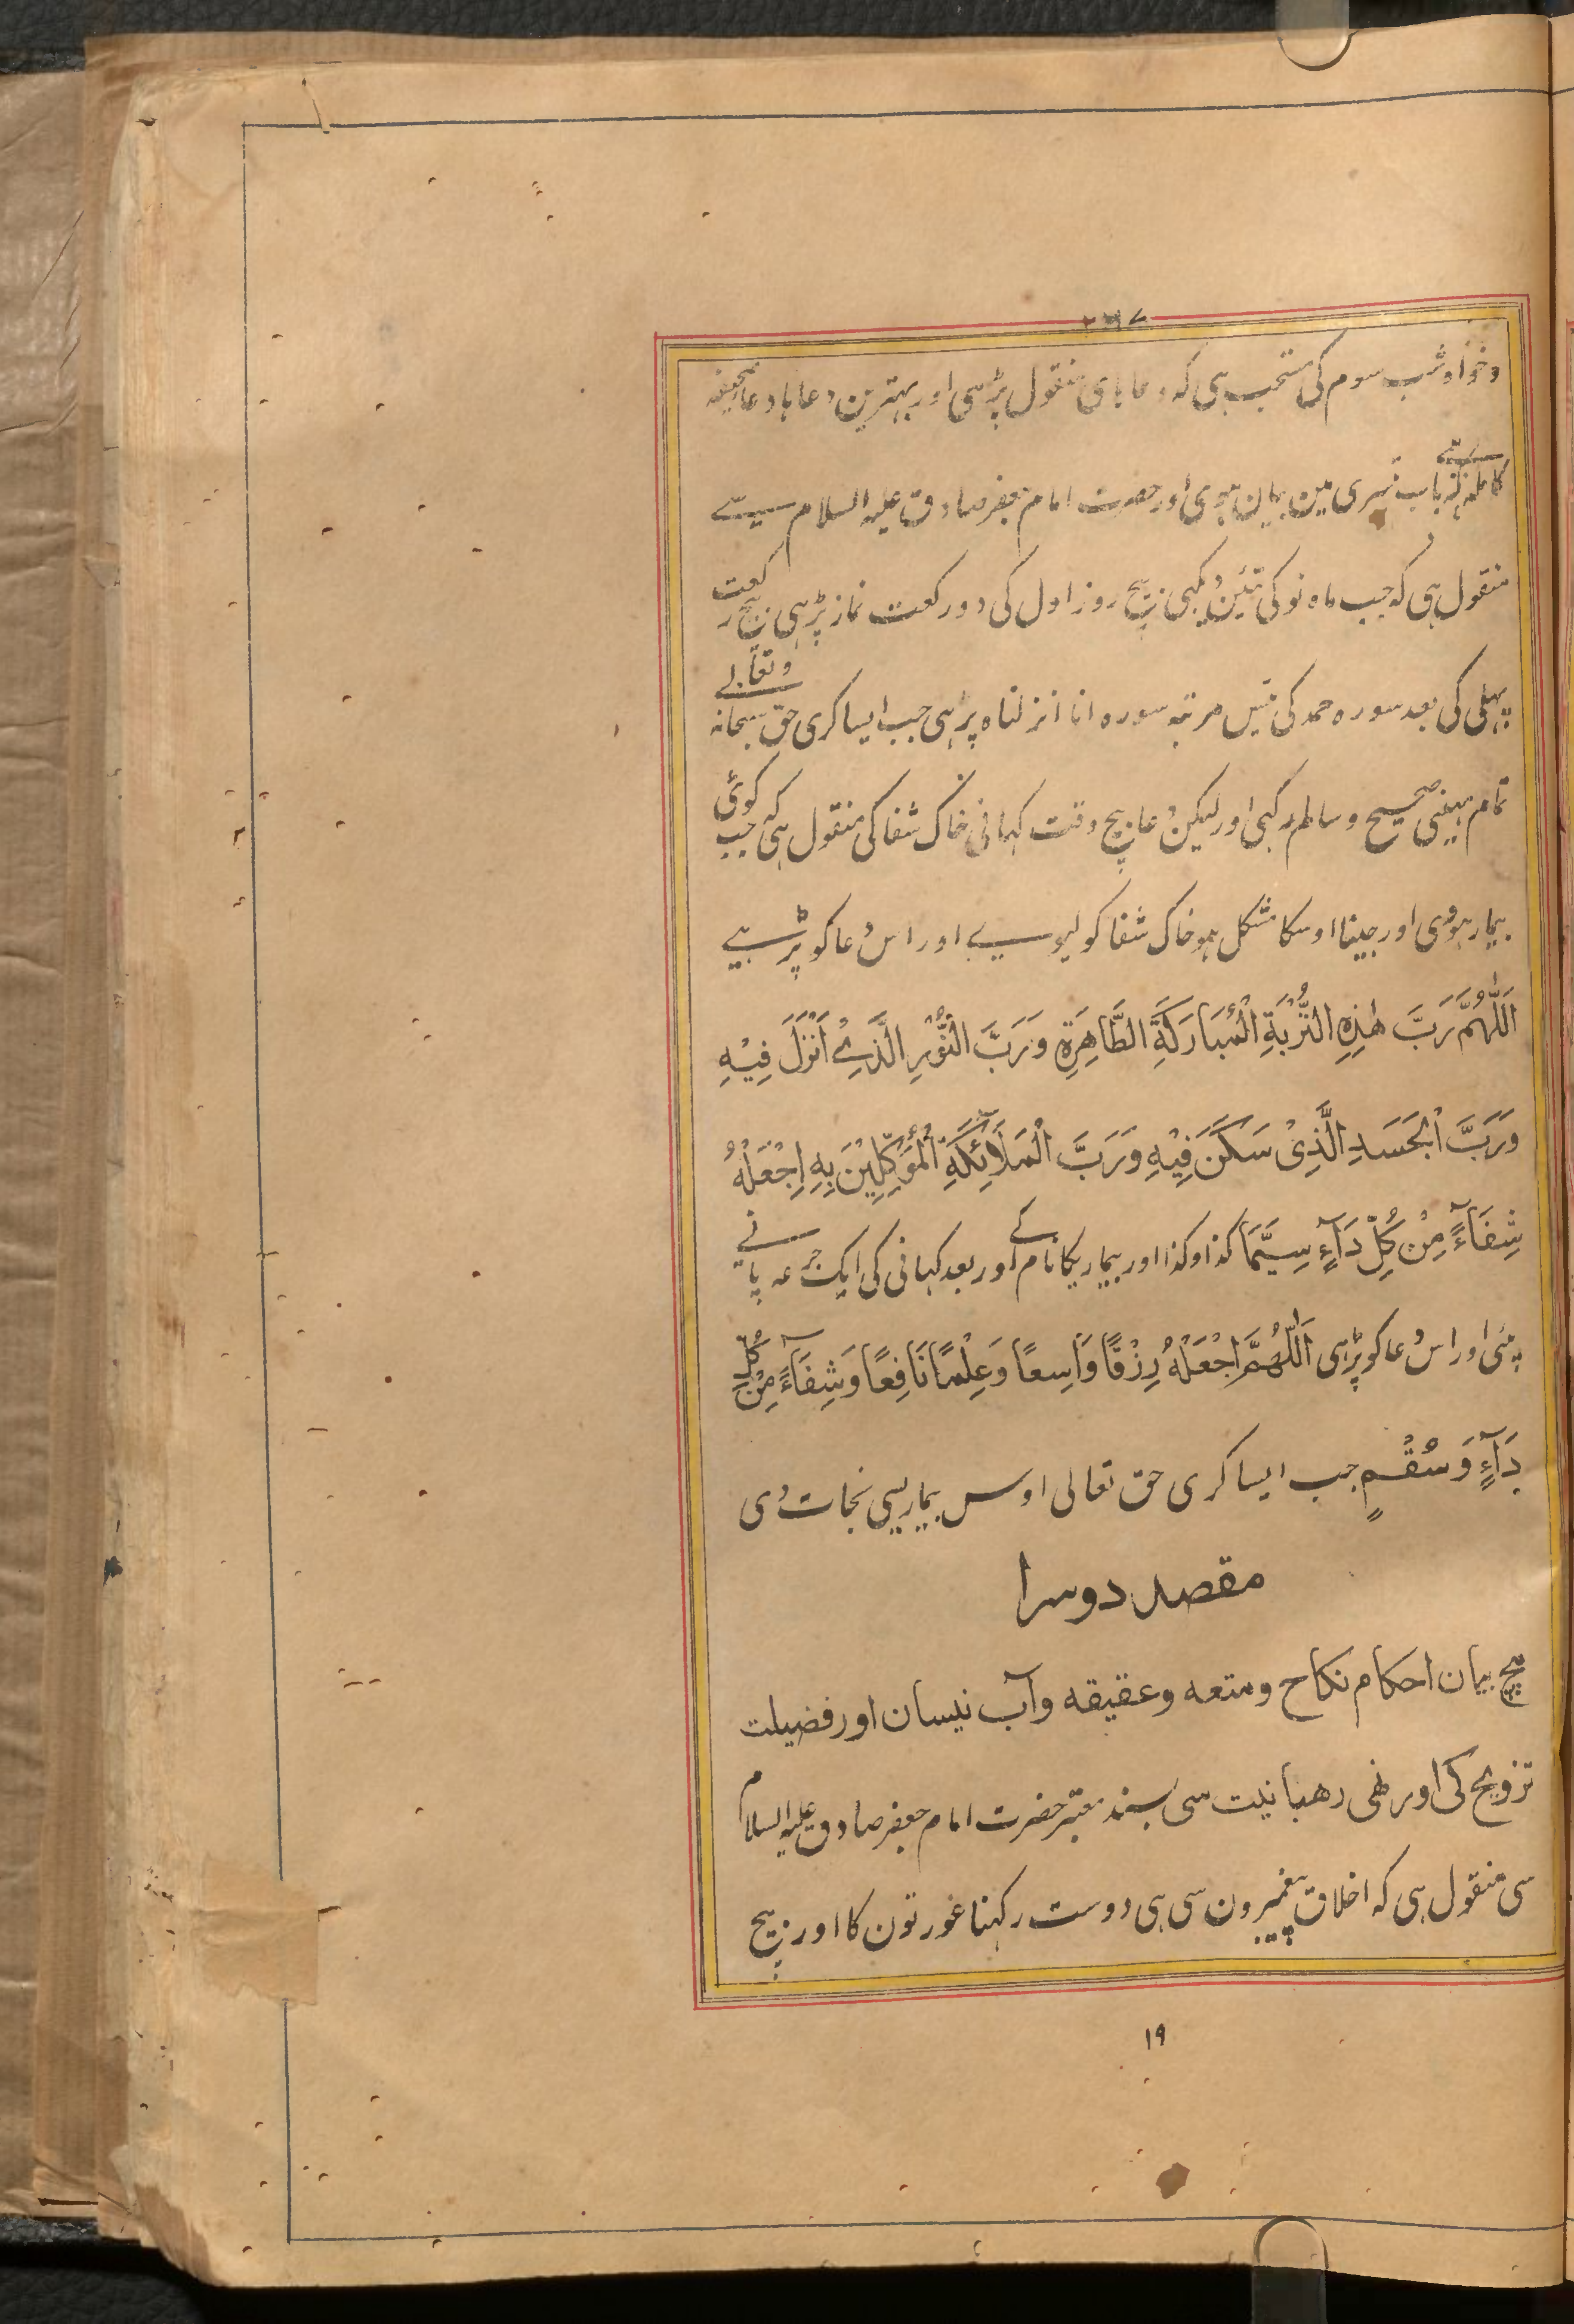 ٢٦٧
وخواه شب سوم کی مستحب ہی کہ دعا ہای منقول پڑہی اور بہترین دعاہا دعا صحیفہ
کاملہ ہی کہ باب تیسری مین بیان ہوی اور حضرت امام جعفر صادق علیہ السلام سیے
منقول ہی کہ جب ماہ نو کی تئین دیکہی بیچ روز اول کی دو رکعت نماز پڑہی بیچ رکعت
پہلی کی بعد سورہ حمد کی تیس مرتبہ سورہ انا انزلناہ پڑہی جب ایسا کری حق سبحانہ وتعالے
تمام مہینی صحیح و سالم رکہی اور لیکن دعا بیچ وقت کہانی خاک شفا کی منقول ہی کہ جب کوئی
بیمار ہووی اور جینا اوسکا مشکل ہو خاک شفا کو لیوے اور اس دعا کو پڑہے
اَللّٰهُمَّ رَبَّ هٰذِهِ التُّرْبَةِ الْمُبَارَكَةِ الطَّاهِرَةِ وَرَبَّ النُّوْرِ الَّذِيْ اَنْزَلَ فِيْهِ
وَرَبَّ الْجَسَدِ الَّذِيْ سَكَنَ فِيْهِ وَرَبَّ الْمَلَائِكَةِ الْمُؤَكِّلِيْنَ بِهِ اِجْعَلْهُ
شِفَآءً مِنْ كُلِّ دَآءٍ سِيَّمَا کذا وکذا اور بیماریکا نام لے اور بعد کہانی کی ایک جرعہ پانے
پئی اور اس دعا کو پڑہی اَللّٰهُمَّ اجْعَلْهُ رِزْقًا وَاسِعًا وَعِلْمًا نَافِعًا وَشِفَآءً مِنْ كُلِّ
دَآءٍ وَسُقْمٍ جب ایسا کری حق تعالی اوس بیماریسی نجات دی
مقصد دوسرا
بیچ بیان احکام نکاح و متعہ و عقیقہ وآب نیسان اور فضیلت
تزویج کی اور نهی رهبانیت سی بسند معتبر حضرت امام جعفر صادق علیہ السلام
سی منقول ہی کہ اخلاق پیغمبرون سی ہی دوست رکہنا عورتون کا اور بیچ
١٩